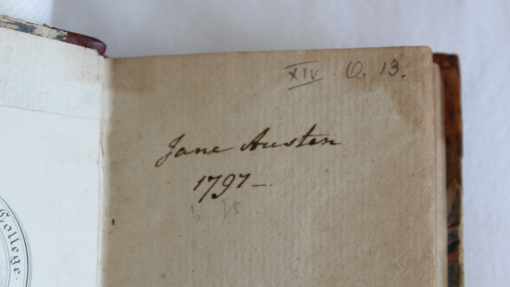 XIV. Q. 13.
Jane Austen
1797–
College.